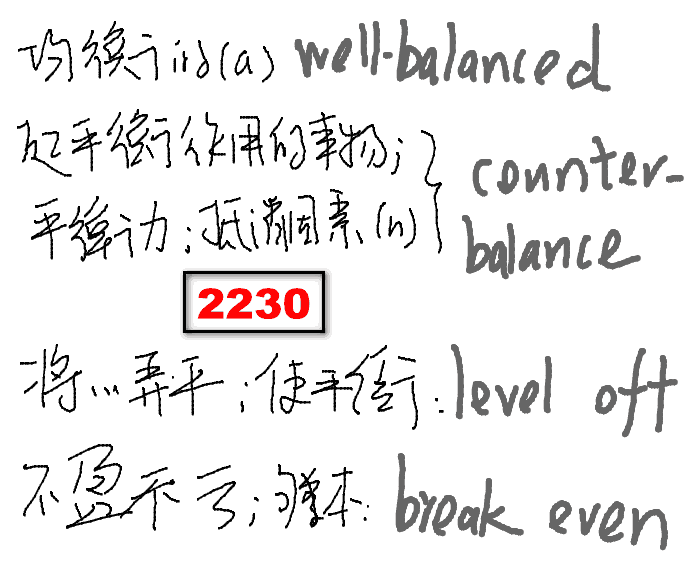 均衡的(a) well-balanced
起平衡作用的事物;
平衡力;抵消因素(n) counter-
balance
2230
将…弄平;使平衡: level off
不盈不亏;够本: break even